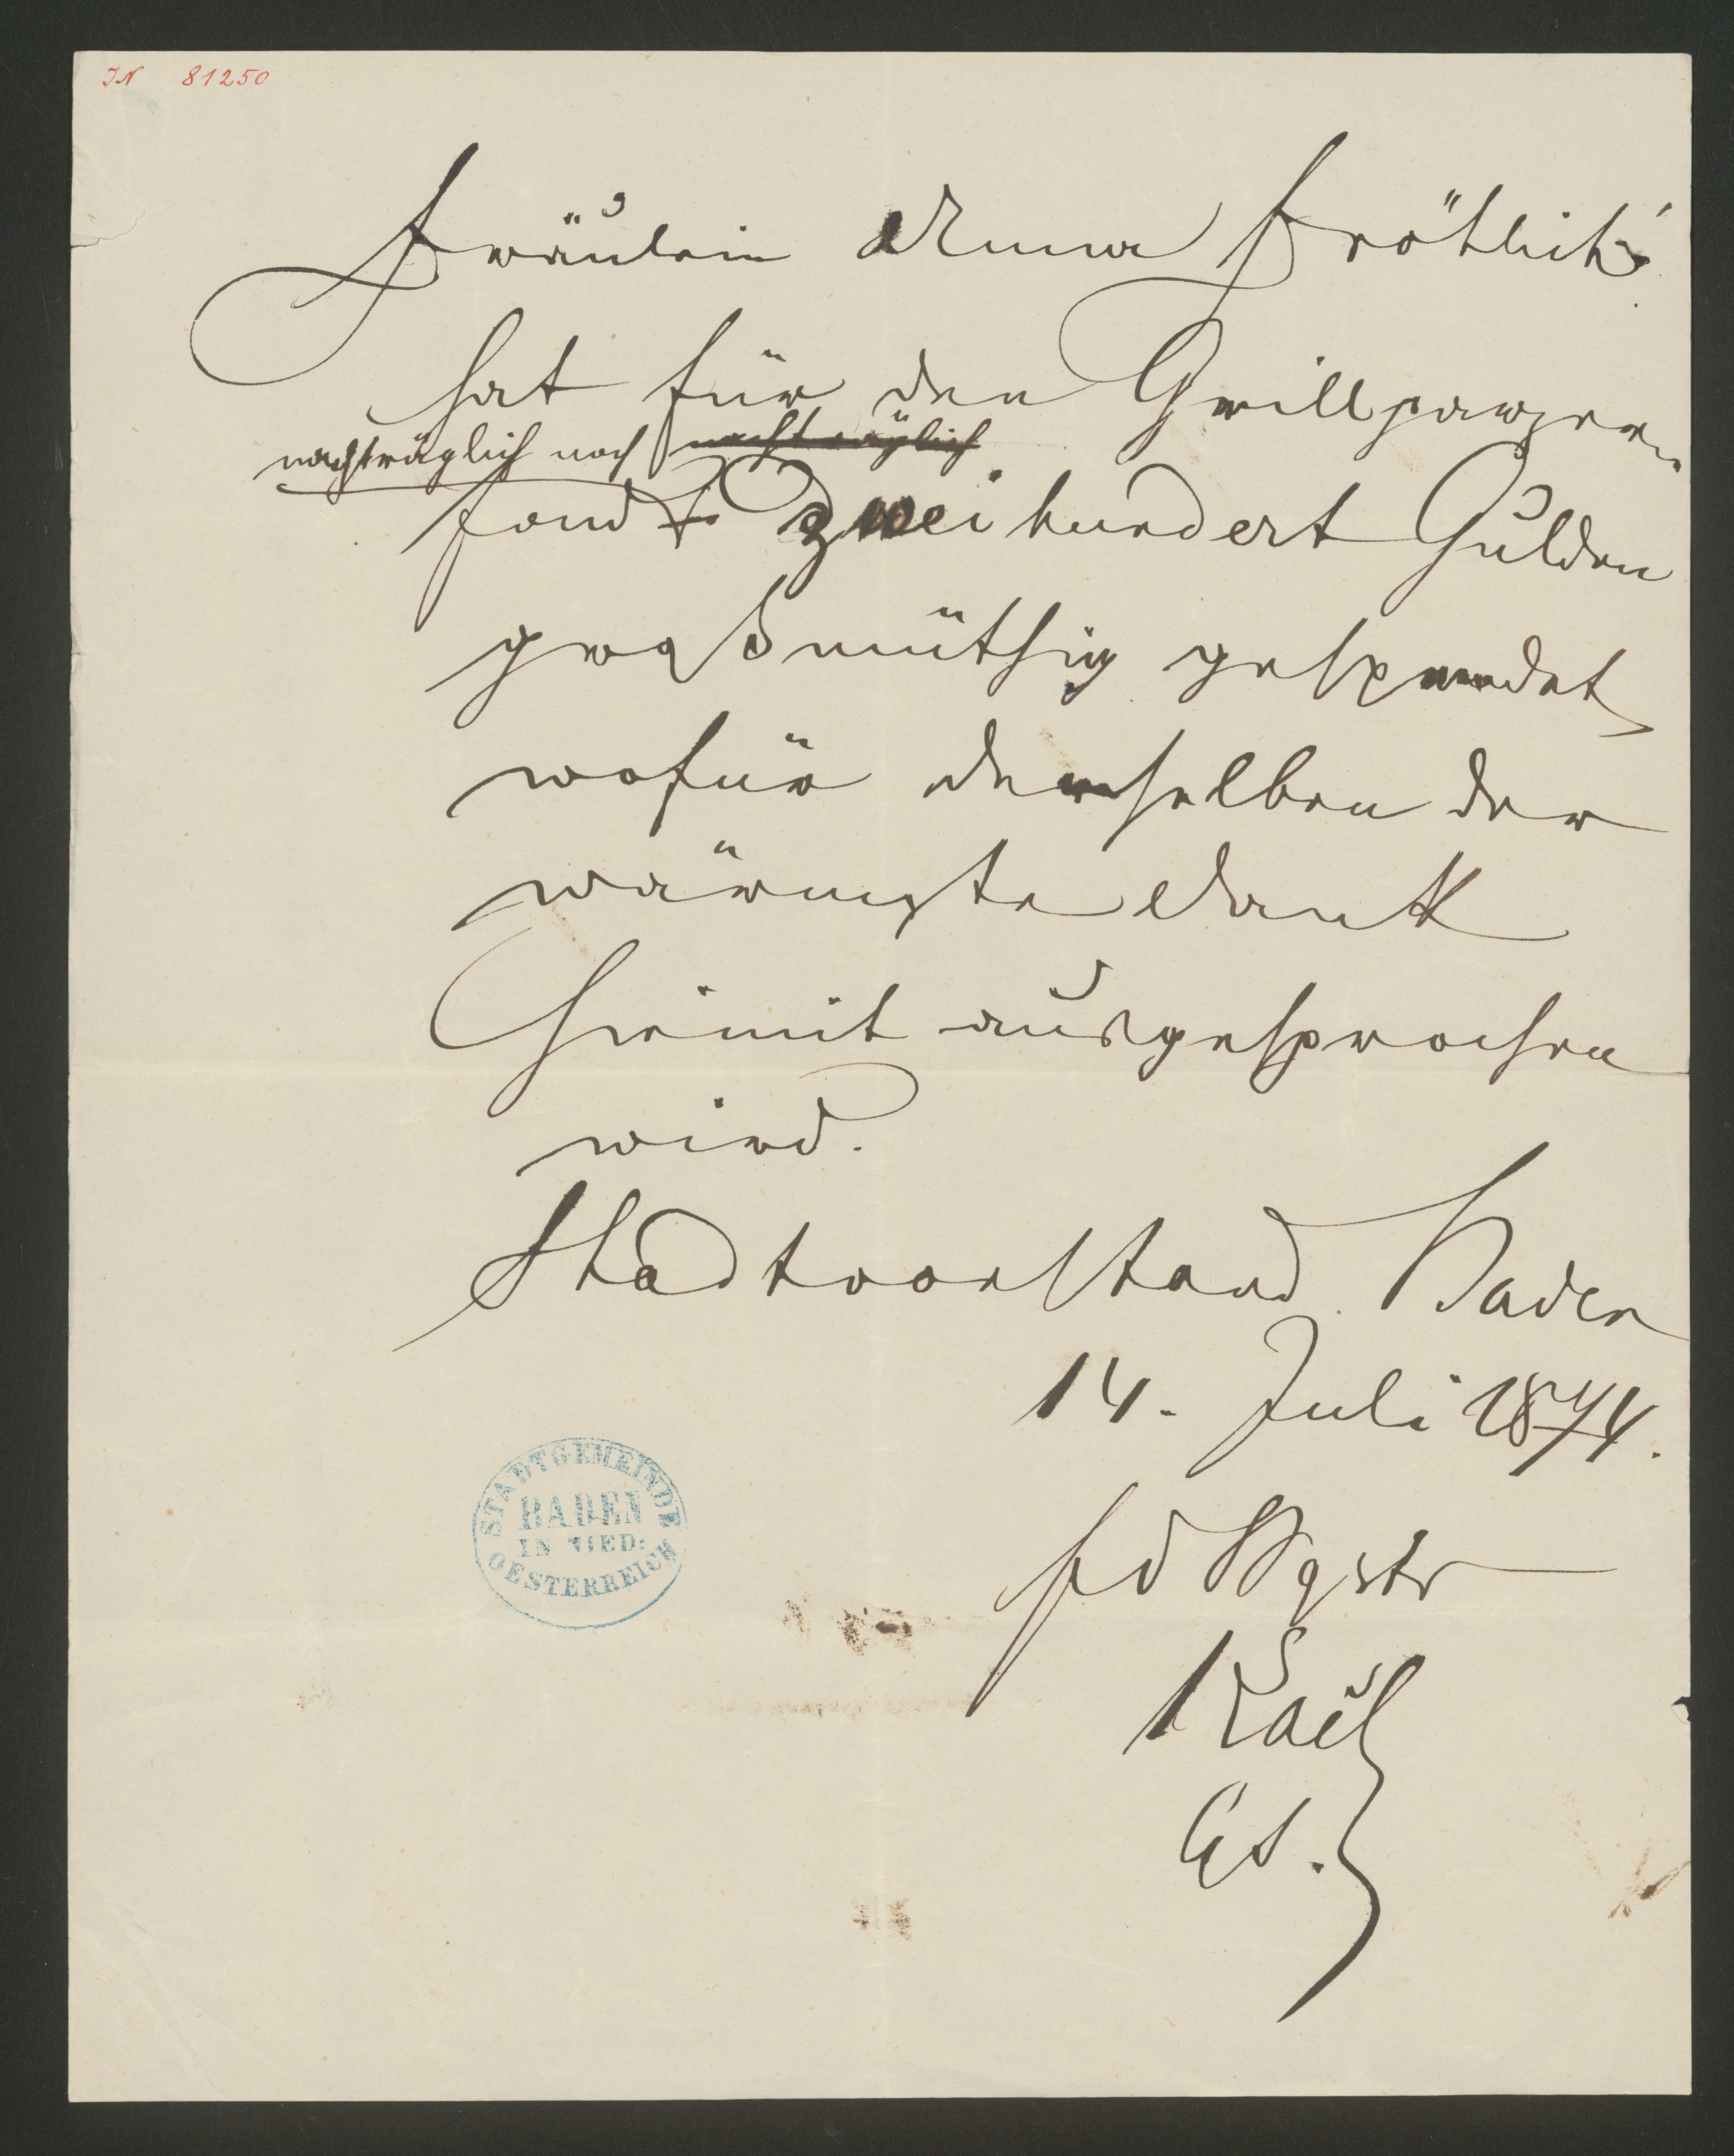 IN 81250
Fräulein Anna Fröhlich
hat für den Grillparzer=
nachträglich noch nachträglich
fond Zweihundert Gulden
großmüthig gespendet
wofür derselben der
wärmste Dank
hiemit ausgesprochen
wird.
Stadtvorstand Baden
14. Juli 1874.
fd Bgstr
STADTGEMEINDE
BADEN
IN NIED:
OESTERREICH